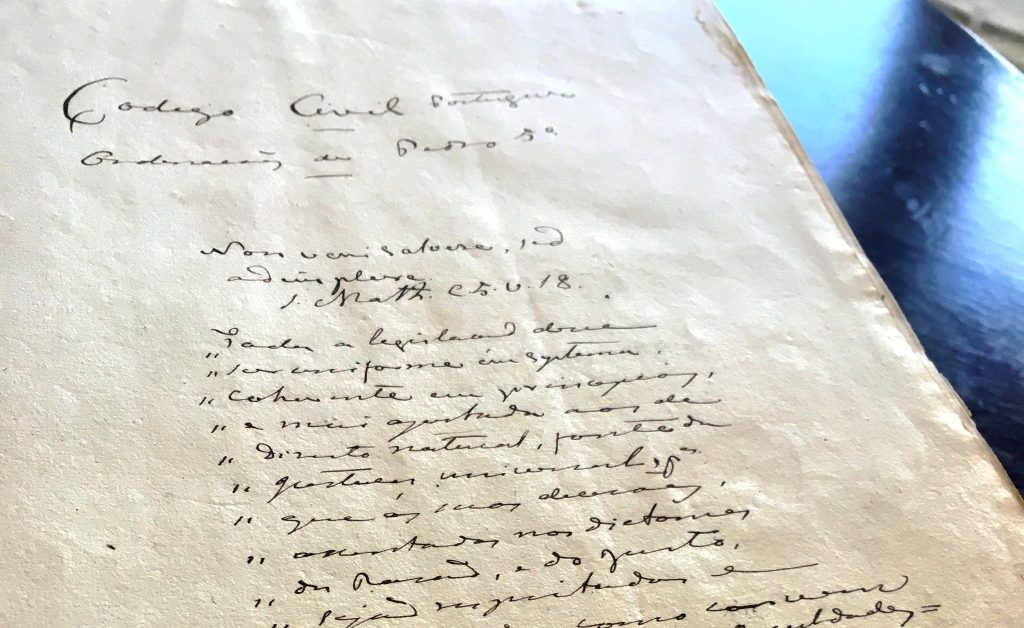 Codigo Civil Portuguez
Ordenações de Pedro 5º
Non veni solvere, sed
adimplere.
S. Math. C 5. v. 18.
„Toda a legislação deve
„ ser uniforme em systema,
„ coherente em principios,
„ e mais ajustada aos de
„ Direito natural, fonte da
„ justiça universal, pª
„ que as suas decisões,
„ assentadas nos dictames
„ da Razaõ, e do Justo,
„ sejaõ respeitadas e
como convem